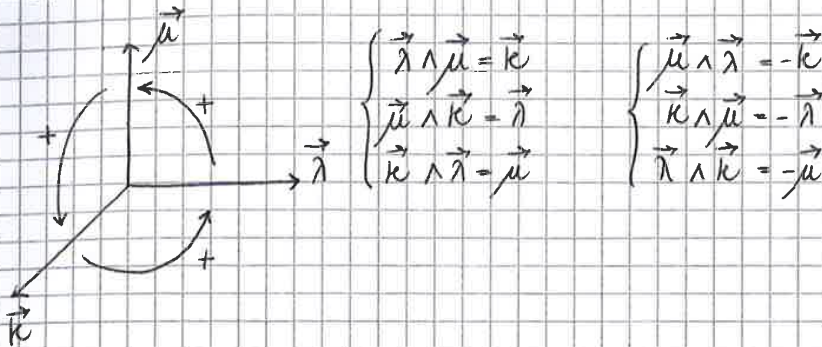 μ⃗
+
+
λ⃗
+
k⃗
λ⃗ ∧ μ⃗ = k⃗
μ⃗ ∧ k⃗ = λ⃗
k⃗ ∧ λ⃗ = μ⃗
μ⃗ ∧ λ⃗ = -k⃗
k⃗ ∧ μ⃗ = -λ⃗
λ⃗ ∧ k⃗ = -μ⃗